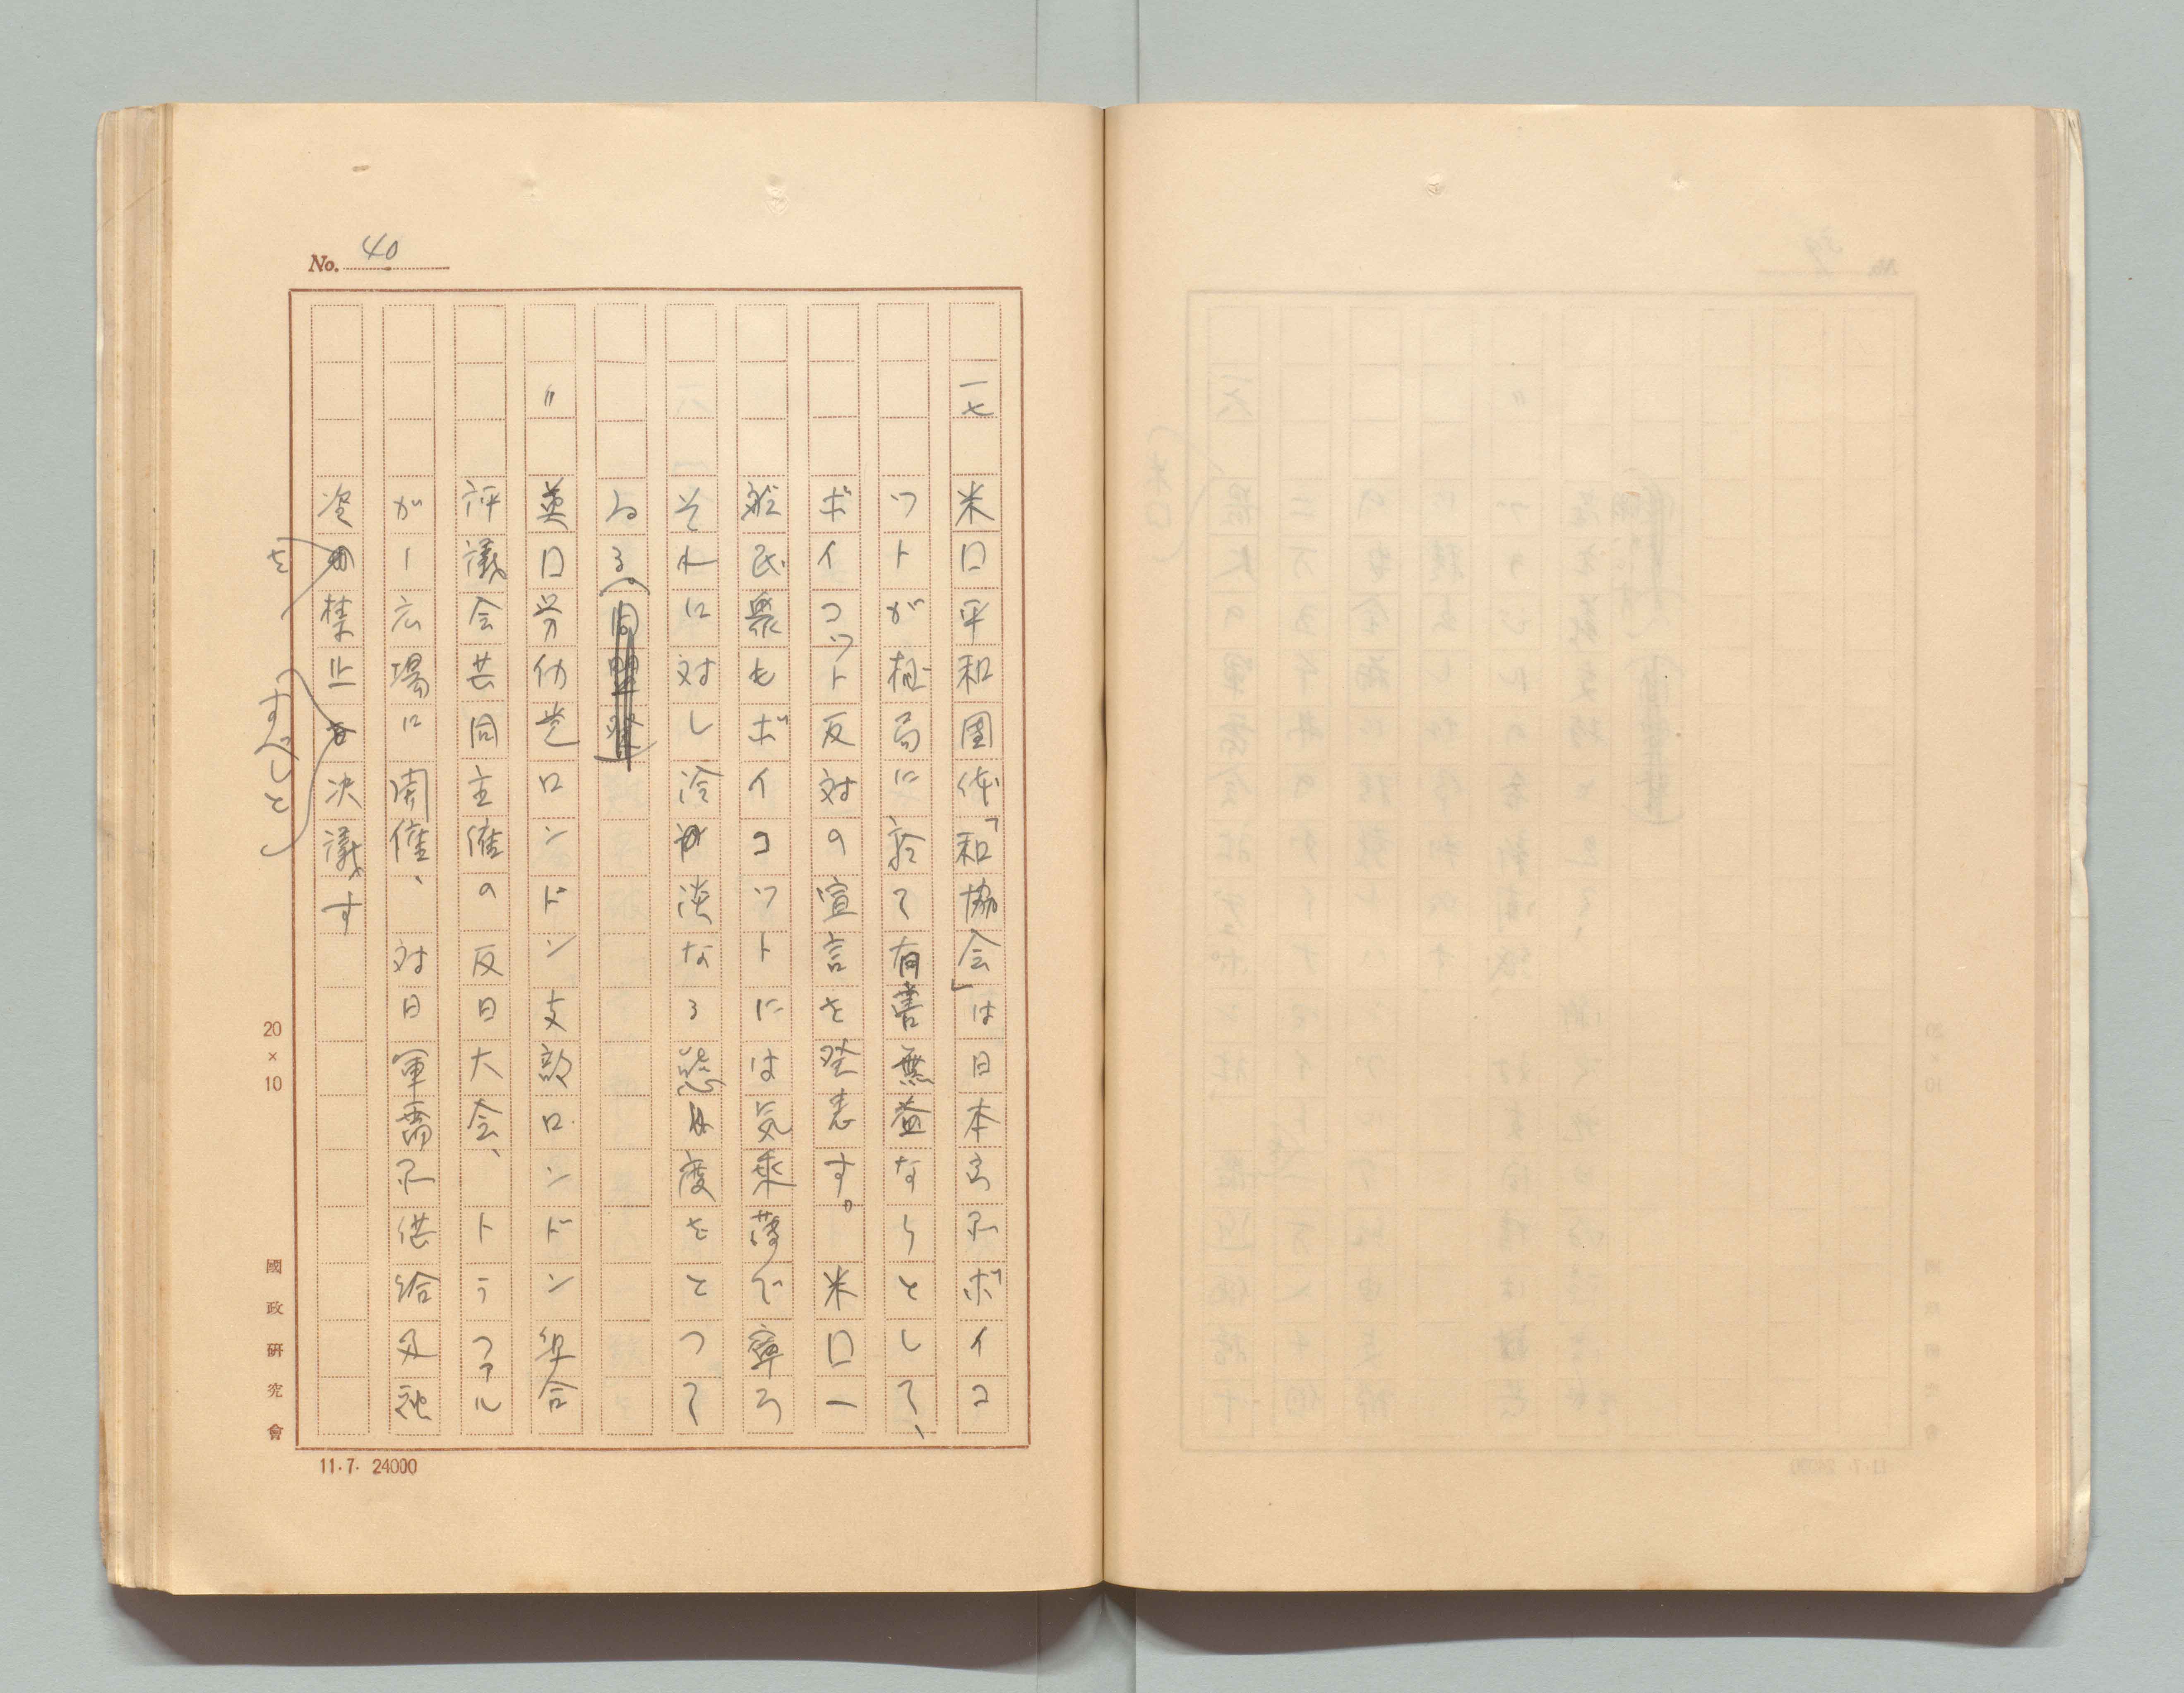 No. 40
一七 米囗平和団体「和協会」は日本商品ボイコ
ツトが極局に於て有害無益なりとして、
ボイコット反対の宣言を発表す。米囗一
般民衆もボイコツトには気乗薄で寧ろ
それに対し冷淡なる態度をとつて
ゐる。(同盟発)
〃 英囗労仂党ロンドン支部ロンドン組合
評議会共同主催の反日大会、トラファル
ガー広場に開催、対日軍需品供給及融
資を禁止すべしと決議す
20×10
國政研究會
11.7. 24000